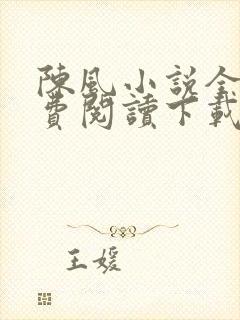 陳風小説全
費閱讀下載
王媛